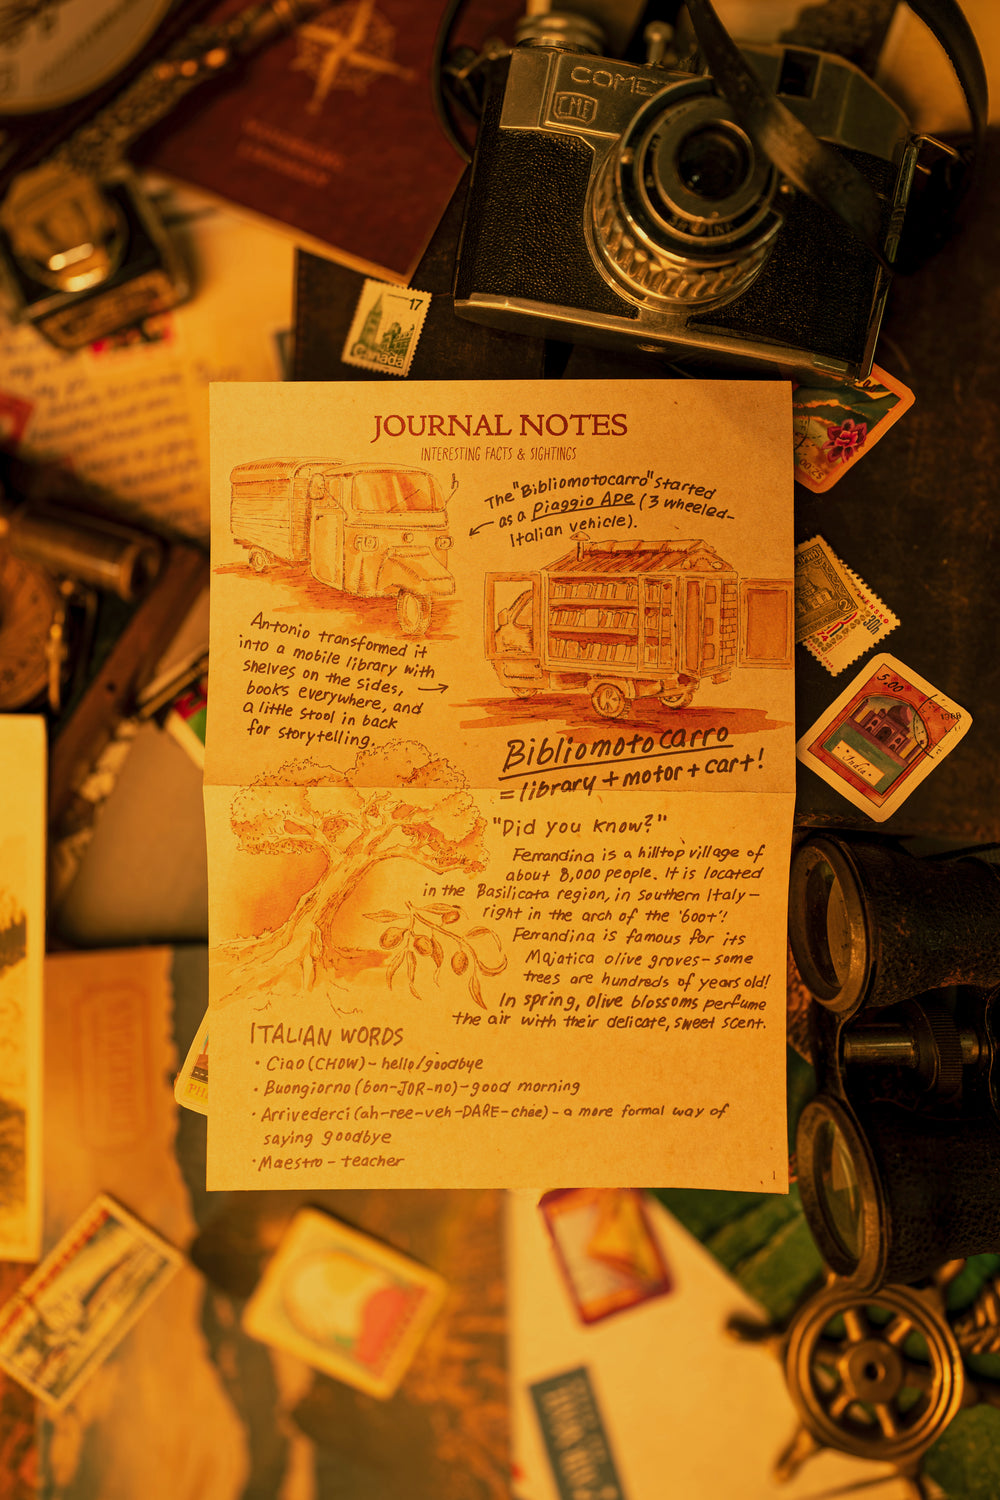 COMET
CME
17
Canada
JOURNAL NOTES
INTERESTING FACTS & SIGHTINGS
The "Bibliomotocarro" started
as a Piaggio Ape (3 wheeled-
Italian vehicle).
Antonio transformed it
into a mobile library with
shelves on the sides,
books everywhere, and
a little stool in back
for storytelling.
Bibliomotocarro
= library + motor + cart!
"Did you know?"
Ferrandina is a hilltop village of
about 8,000 people. It is located
in the Basilicata region, in Southern Italy-
right in the arch of the 'boot'!
Ferrandina is famous for its
Majatica olive groves-some
trees are hundreds of years old!
In spring, olive blossoms perfume
the air with their delicate, sweet scent.
ITALIAN WORDS
• Ciao (CHOW) - hello/goodbye
• Buongiorno (bon-JOR-no)-good morning
• Arrivederci (ah-ree-veh-DARE-chee) - a more formal way of
saying goodbye
• Maestro - teacher
1
5.00
India